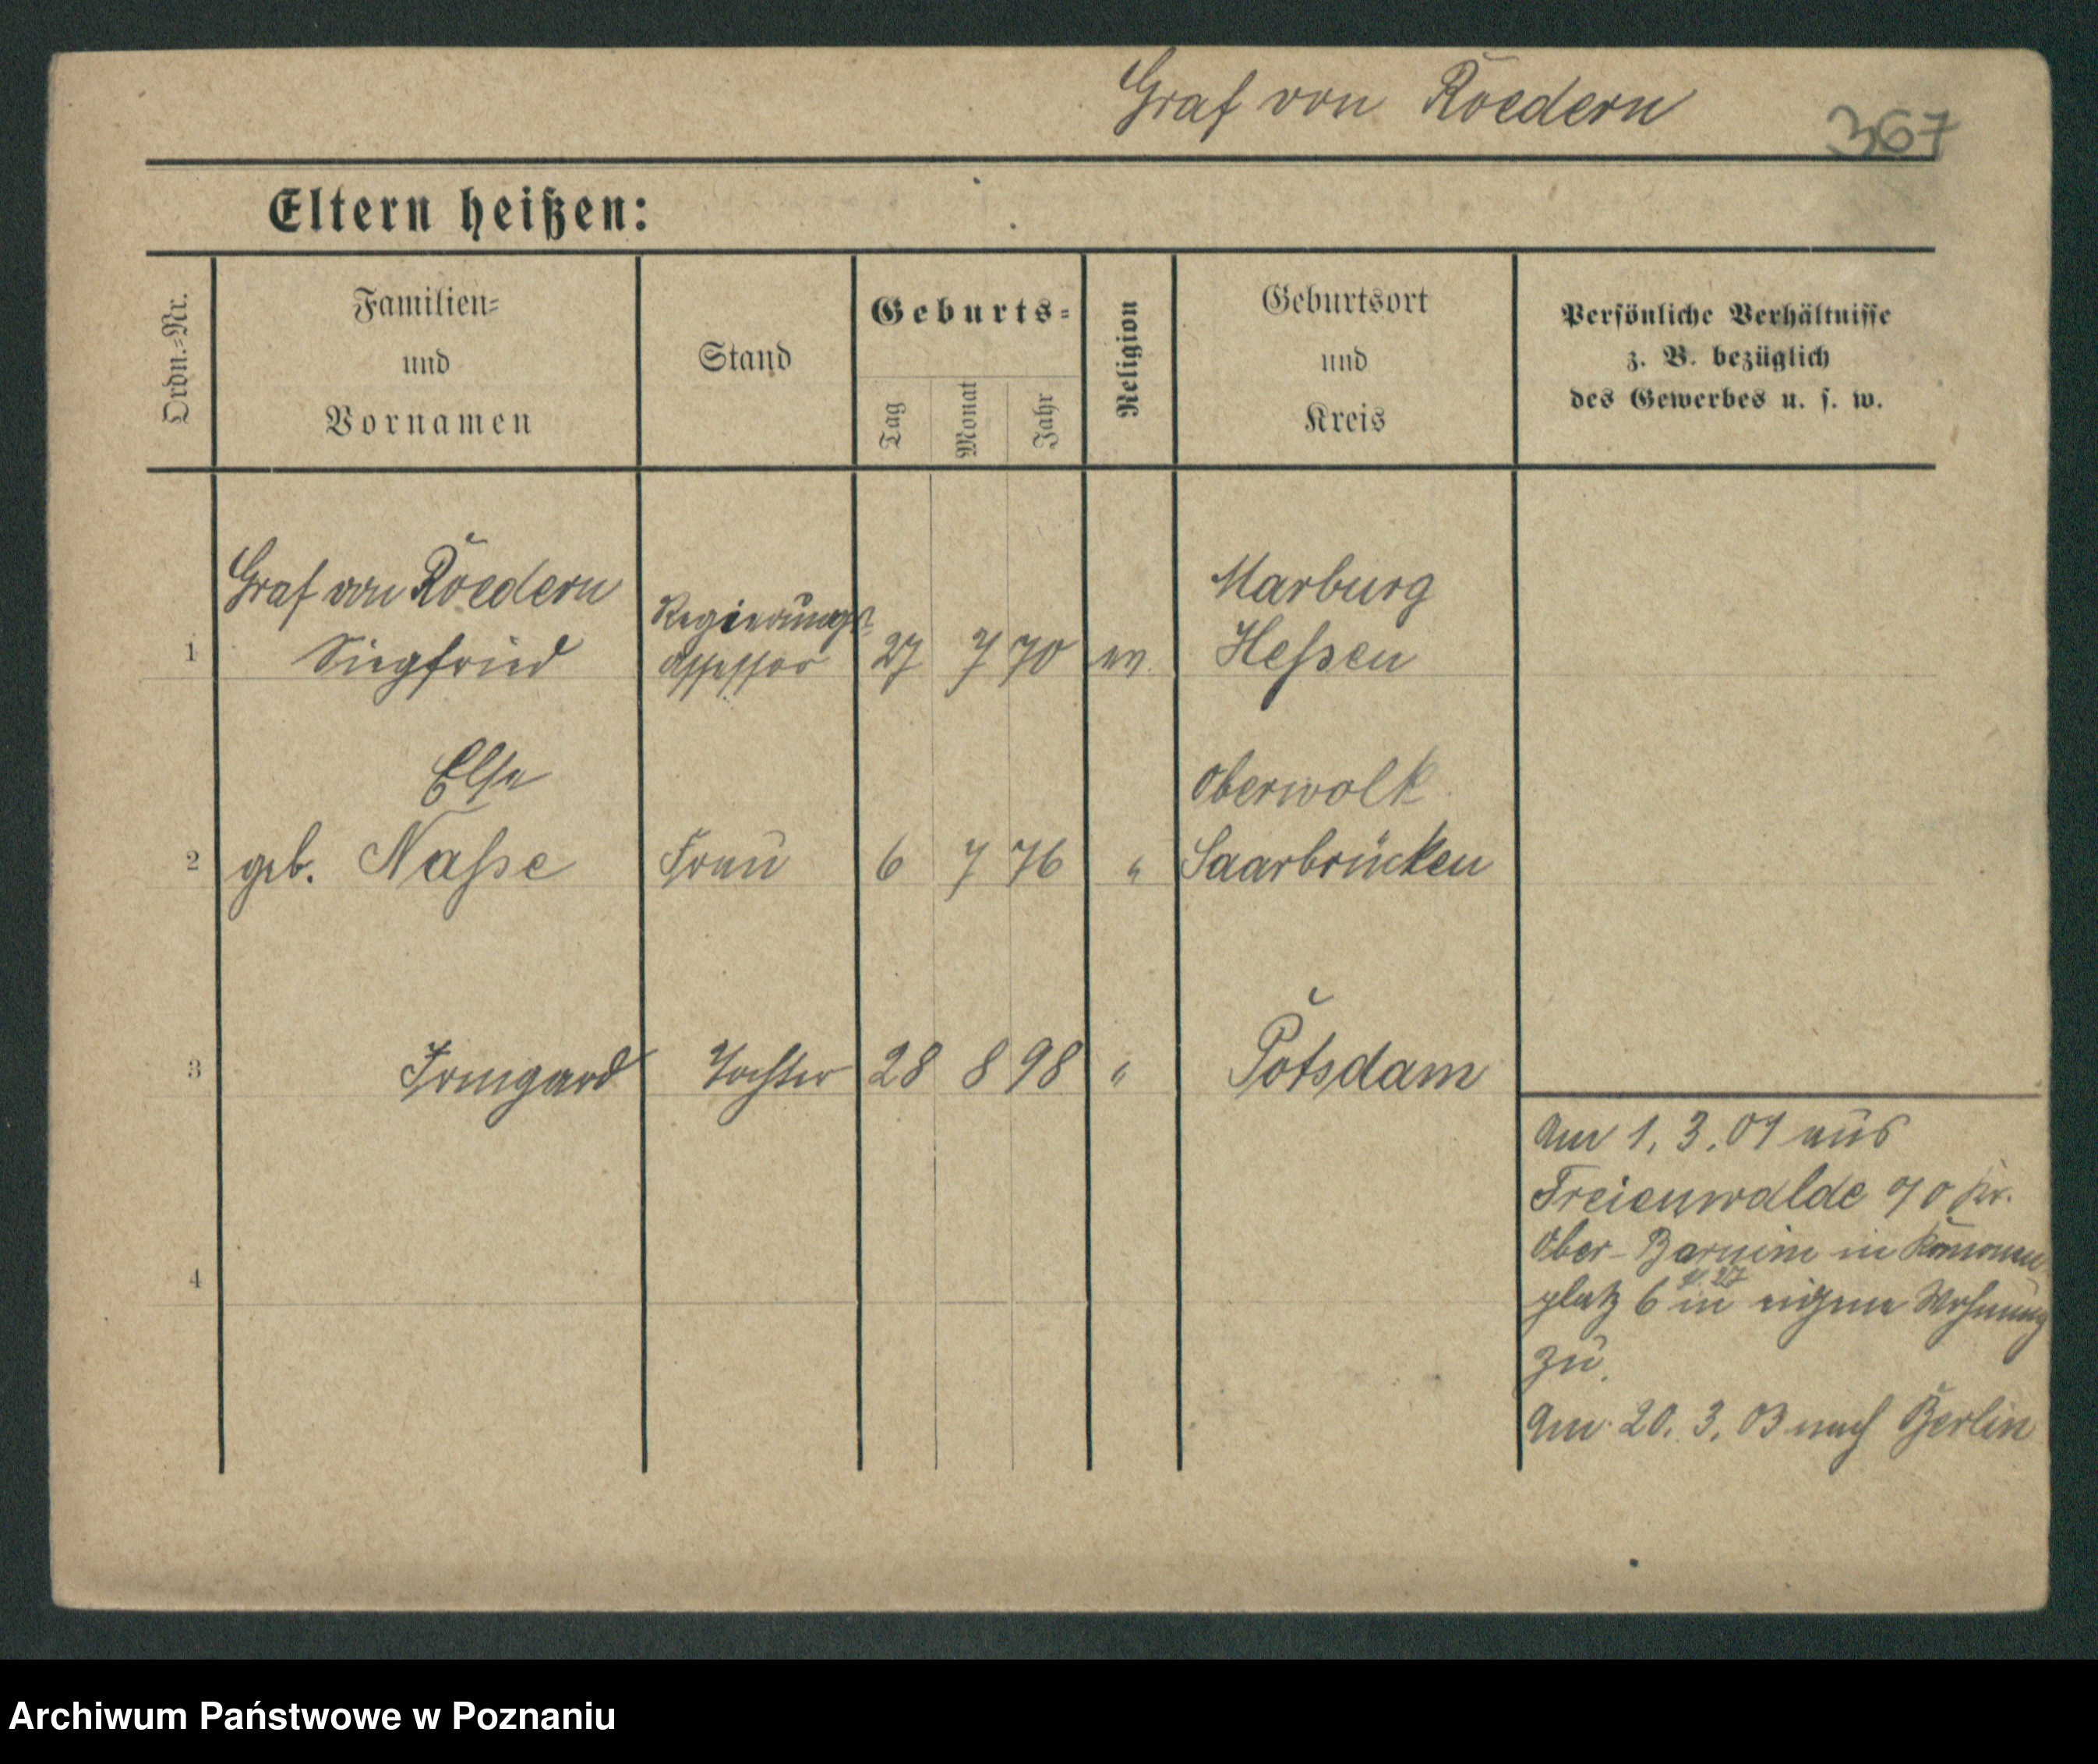 Graf von Roedern
367
Eltern heißen:
Ordn.-Nr.
Familien-
und
Vornamen
Stand
Geburts-
Tag
Monat
Jahr
Religion
Geburtsort
und
Kreis
Persönliche Verhältnisse
z. B. bezüglich
des Gewerbes u. s. w.
1
Graf von Roedern
Siegfried
Regierungs-
Assessor
27 7 70 ev.
Marburg
Hessen
2
Else
geb. Nasse
Frau
6 7 76 "
Oberwolk
Saarbrücken
3
Irmgard
Tochter
28 8 98 "
Potsdam
4
Am 1. 3. 01 aus
Freienwalde
Ober-Barnim in
platz 6 in eigene Wohnung
zu.
Am 20. 3. 03 nach Berlin
Archiwum Państwowe w Poznaniu